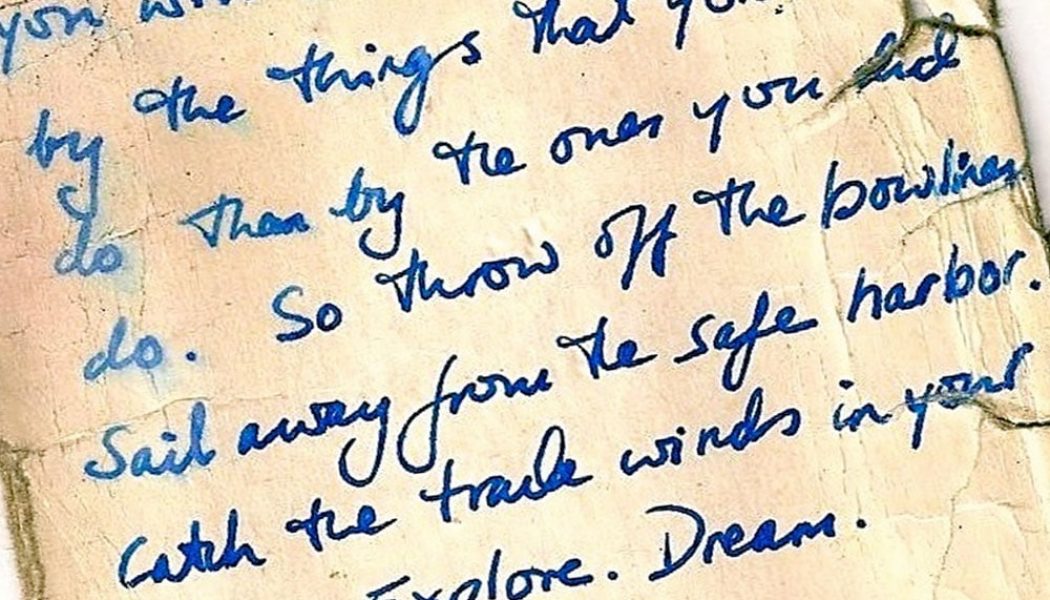 you
by the things that you
do than by the ones you did
do. So throw off the bowlines
Sail away from the safe harbor.
Catch the trade winds in your
Explore. Dream.